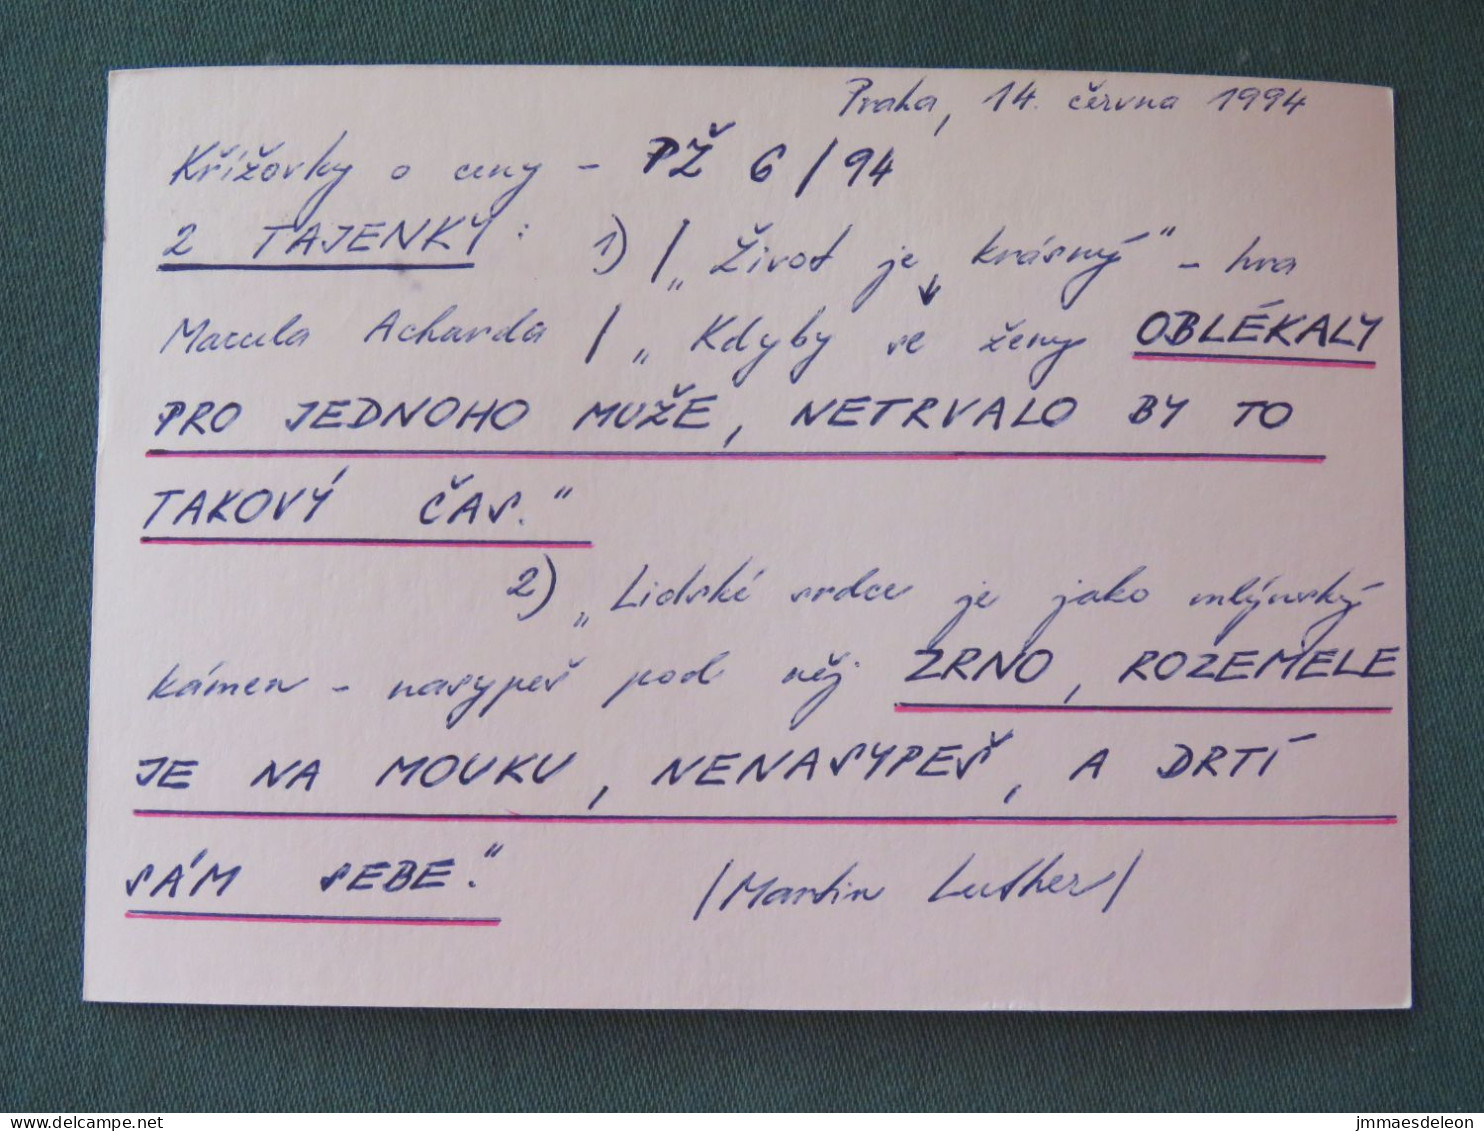 Praha, 14. června 1994
Křížovky o ceny - PŽ 6/94
2 TAJENKY: 1) / „Život je krásný" - hra
Marcela Acharda / „Kdyby se ženy OBLÉKALY
PRO JEDNOHO MUŽE, NETRVALO BY TO
TAKOVÝ ČAS."
2) „Lidské srdce je jako mlýnský
kámen - nasypeš pod něj ZRNO, ROZEMELE
JE NA MOUKU, NENASYPEŠ, A DRTÍ
SÁM SEBE."
/Martin Luther/
www.delcampe.net
jmmaesdeleon